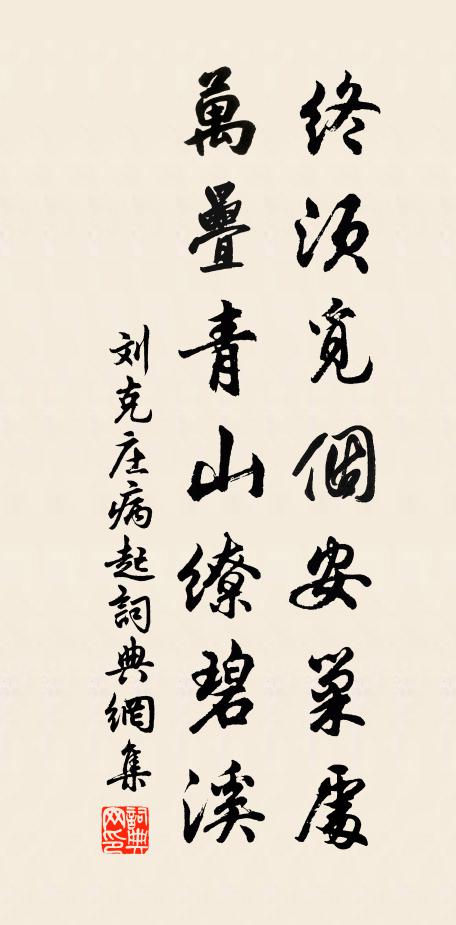 終須覓個安巢處
萬疊青山繚碧溪
刘克庄病起詞典網集
詞典网印